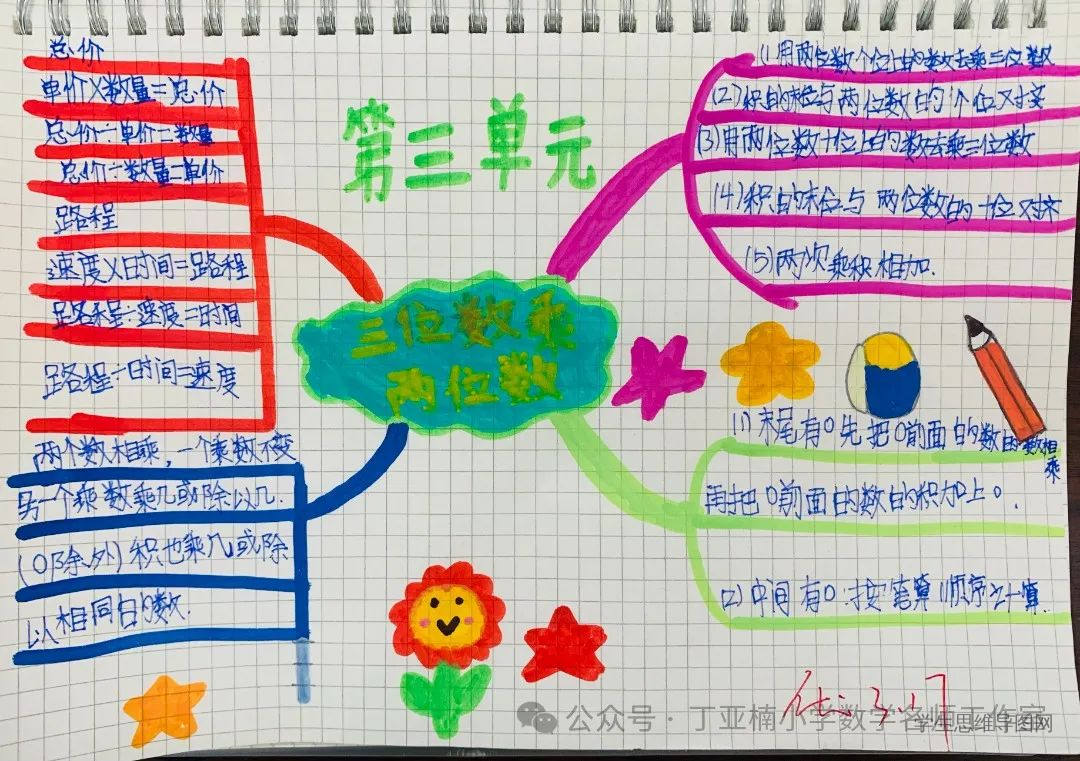 第三单元
三位数乘
两位数
总价
单价×数量=总价
总价÷单价=数量
总价÷数量=单价
路程
速度×时间=路程
路程÷速度=时间
路程÷时间=速度
(1)用两位数个位上的数去乘三位数
(2)积的末位与两位数的个位对齐
(3)用两位数十位上的数去乘三位数
(4)积的末位与两位数的十位对齐
(5)两次乘积相加.
两个数相乘,一个乘数不变
另一个乘数乘几或除以几.
(0除外)积也乘几或除
以相同的数.
(1)末尾有0先把0前面的数的数相乘
再把0前面的数的积加上0.
(2)中间有0.按笔算顺序计算.
公众号·丁亚楠小学数学名师工作室
学生思维导图网